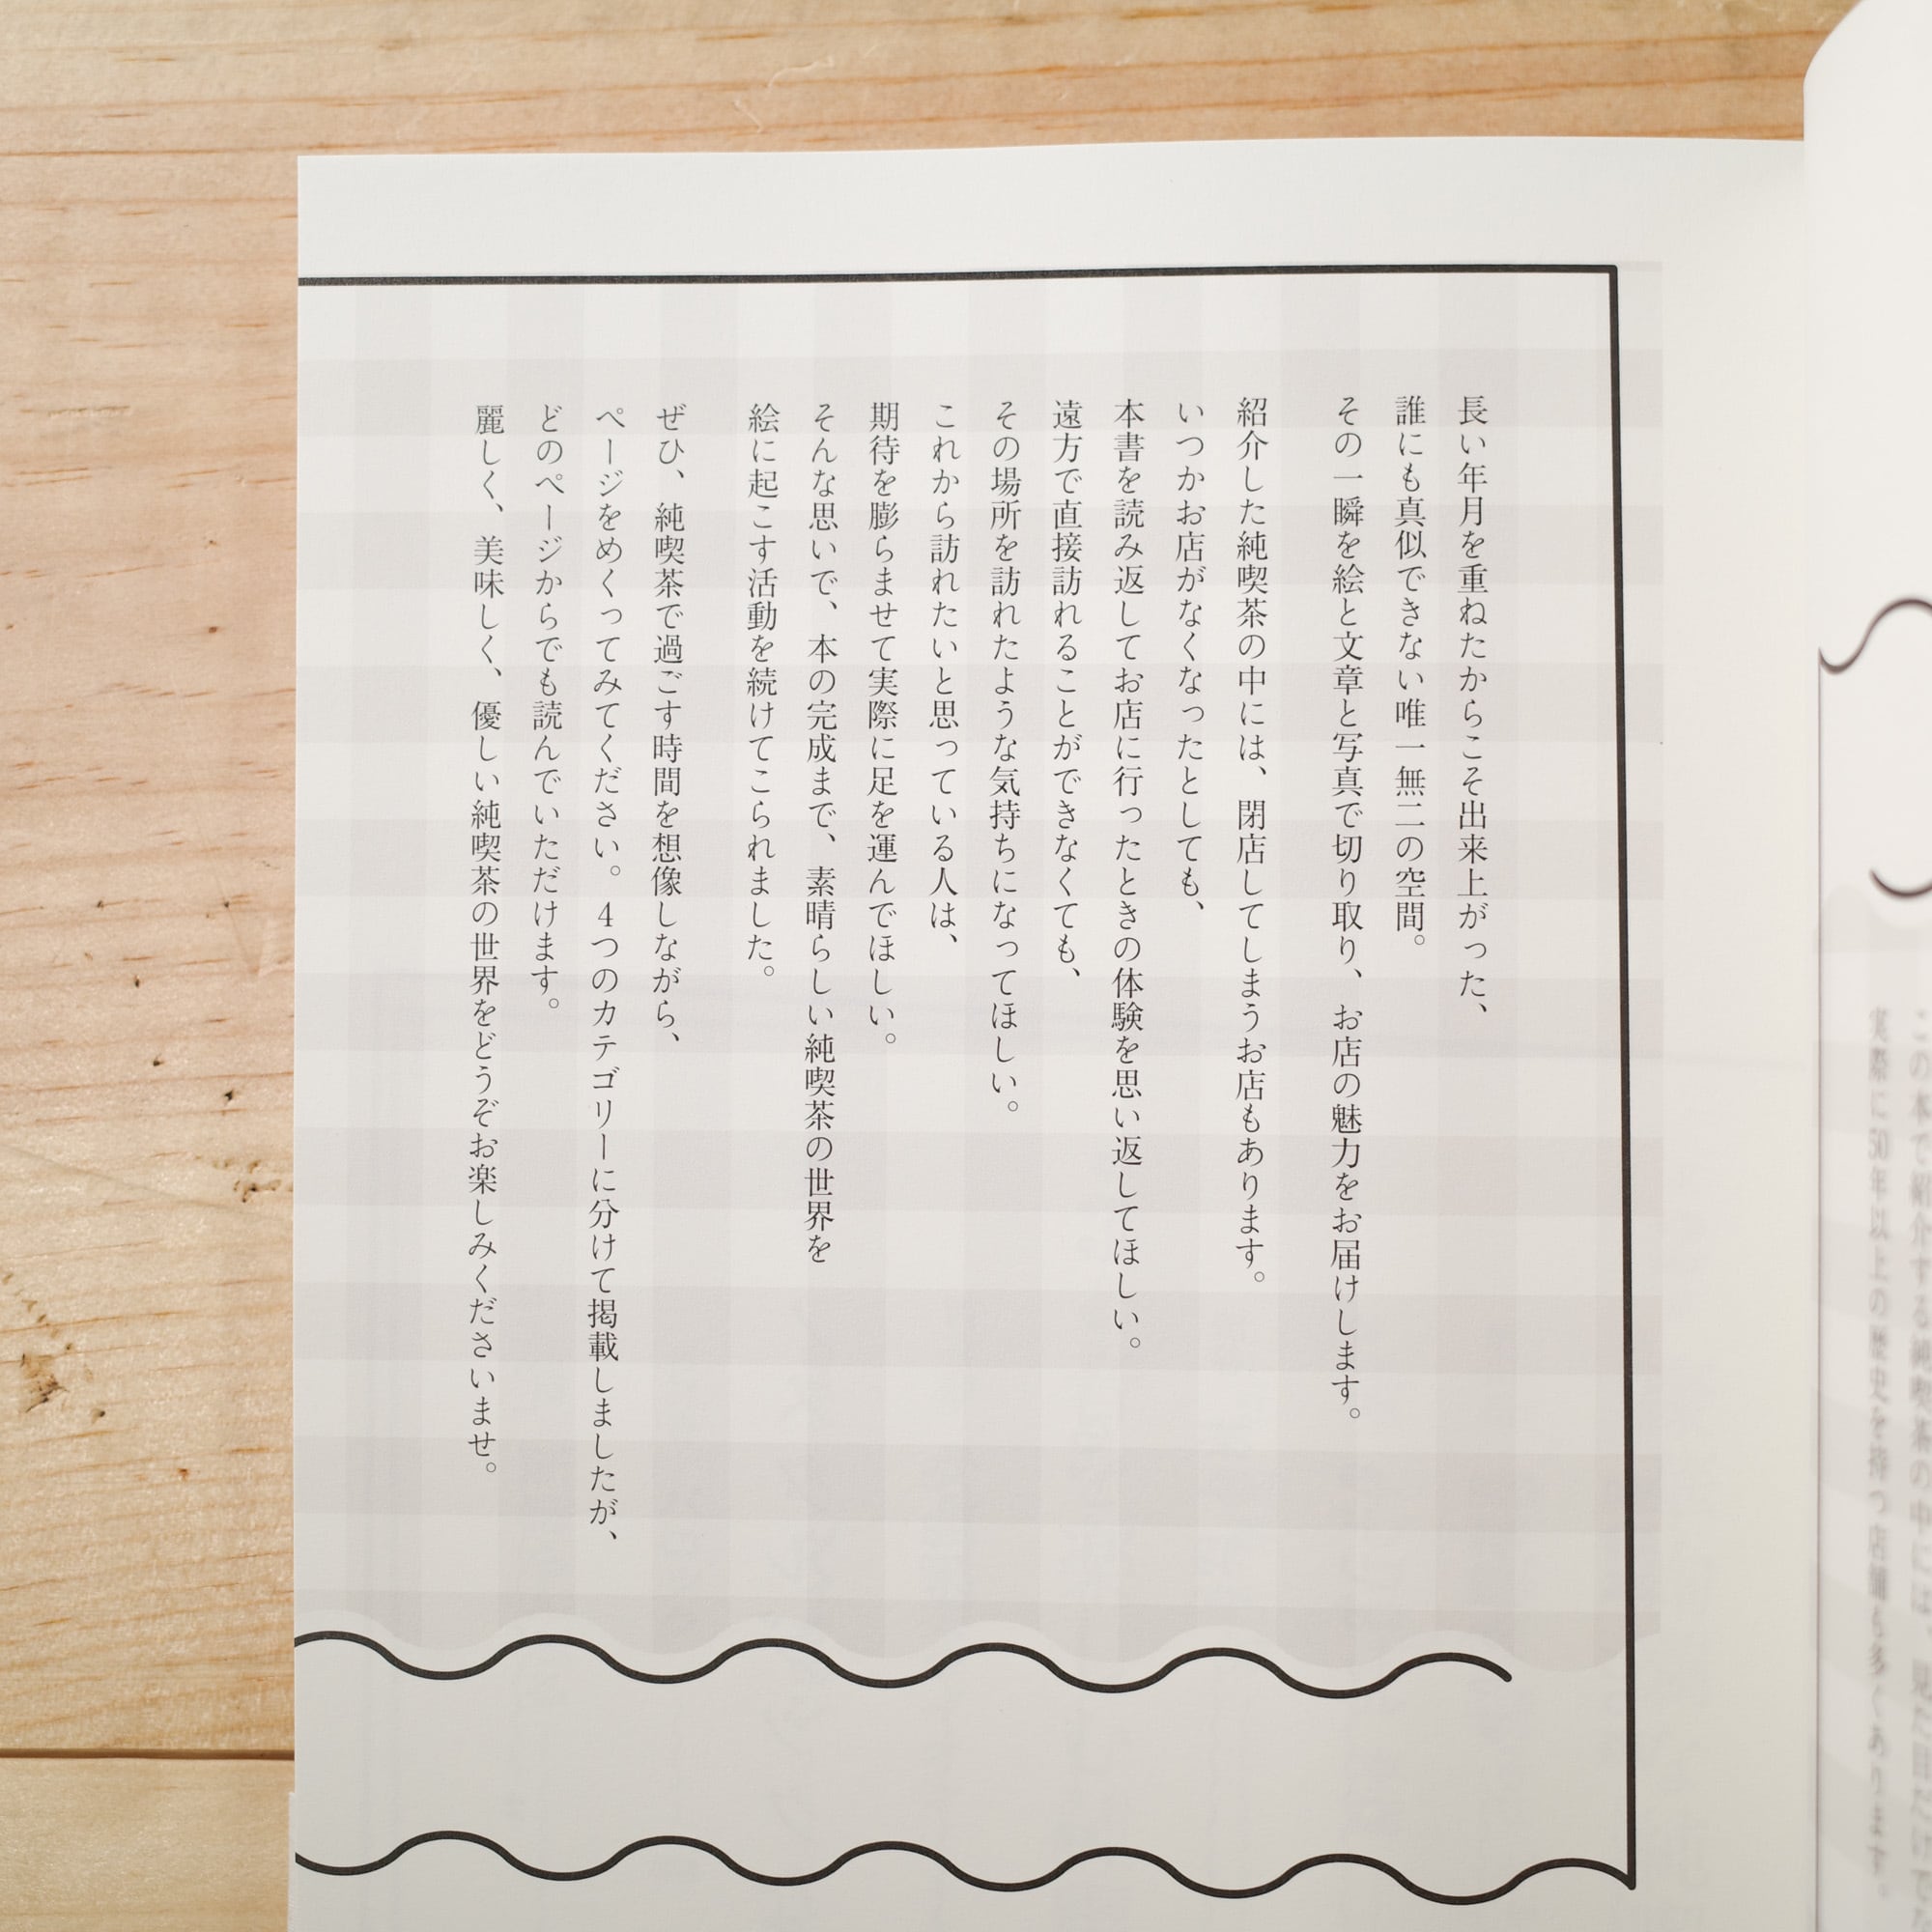 この本で紹介する純喫茶の中には、見た目だけでな
実際に50年以上の歴史を持つ店舗も多くあります。
長い年月を重ねたからこそ出来上がった、
誰にも真似できない唯一無二の空間。
その一瞬を絵と文章と写真で切り取り、お店の魅力をお届けします。
紹介した純喫茶の中には、閉店してしまうお店もあります。
いつかお店がなくなったとしても、
本書を読み返してお店に行ったときの体験を思い返してほしい。
遠方で直接訪れることができなくても、
その場所を訪れたような気持ちになってほしい。
これから訪れたいと思っている人は、
期待を膨らませて実際に足を運んでほしい。
そんな思いで、本の完成まで、素晴らしい純喫茶の世界を
絵に起こす活動を続けてこられました。
ぜひ、純喫茶で過ごす時間を想像しながら、
ページをめくってみてください。4つのカテゴリーに分けて掲載しましたが、
どのページからでも読んでいただけます。
麗しく、美味しく、優しい純喫茶の世界をどうぞお楽しみくださいませ。